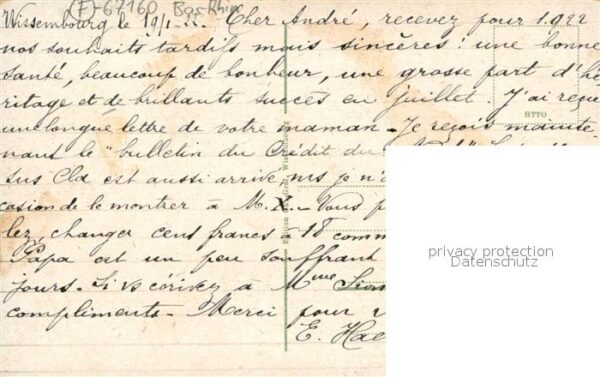 (F)-67160 Bas Rhin
Wissembourg le 19/1.22. Cher André, recevez pour 1922
nos souhaits tardifs mais sincères: une bonne
santé, beaucoup de bonheur, une grosse part d'hé
ritage et de brillants succès en juillet. J'ai reçu
une longue lettre de votre maman. Je reçois mainte
nant le "bulletin du Crédit du
sus Cla est aussi arrivé, ms je n'
casion de le montrer à M. X.- Vous p
lez, changer cens francs à 18 comm
Papa est un peu souffrant
jours. Si vs écrivez à Mme
compliments. Merci pour
E. Hae
HTTO
privacy protection
Datenschutz